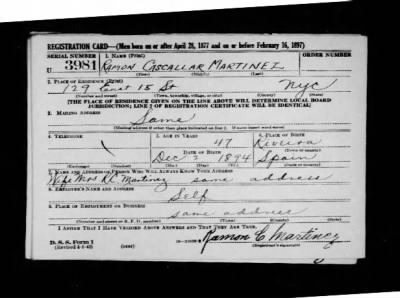 REGISTRATION CARD—(Men born on or after April 28, 1877 and on or before February 16, 1897)
SERIAL NUMBER 1. NAME (Print) ORDER NUMBER
U 3981 RAMON CASCALLAR MARTINEZ
(First) (Middle) (Last)
2. PLACE OF RESIDENCE (Print)
129 East 15 St NYC
(Number and street) (Town, township, village, or city) (County) (State)
[THE PLACE OF RESIDENCE GIVEN ON THE LINE ABOVE WILL DETERMINE LOCAL BOARD
JURISDICTION; LINE 2 OF REGISTRATION CERTIFICATE WILL BE IDENTICAL]
3. MAILING ADDRESS
Same
[Mailing address if other than place indicated on line 2. If same insert word same]
4. TELEPHONE 5. AGE IN YEARS 6. PLACE OF BIRTH
47
DATE OF BIRTH (Town or county)
Dec 2 1894 Spain
(Exchange) (Number) (Mo.) (Day) (Yr.) (State or country)
7. NAME AND ADDRESS OF PERSON WHO WILL ALWAYS KNOW YOUR ADDRESS
Wife Mrs R.C. Martinez same address
8. EMPLOYER'S NAME AND ADDRESS
Self
9. PLACE OF EMPLOYMENT OR BUSINESS
same address
(Number and street or R. F. D. number) (Town) (County) (State)
I AFFIRM THAT I HAVE VERIFIED ABOVE ANSWERS AND THAT THEY ARE TRUE.
D. S. S. Form 1
(Revised 4-1-42) (over) Ramon C Martinez
(Registrant's signature)